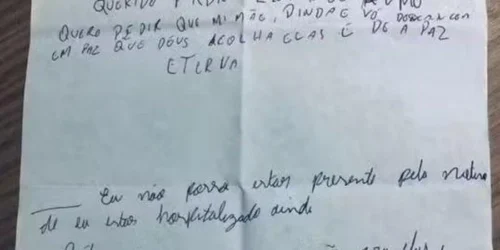 QUERIDO
QUERO PEDIR QUE MI MÃE, DINDA E VÓ DESCANCEM
EM PAZ QUE DEUS ACOLHA ELAS E DE A PAZ
ETERNA
Eu não posso estar presente pelo motivo
de eu estar hospitalizado ainda